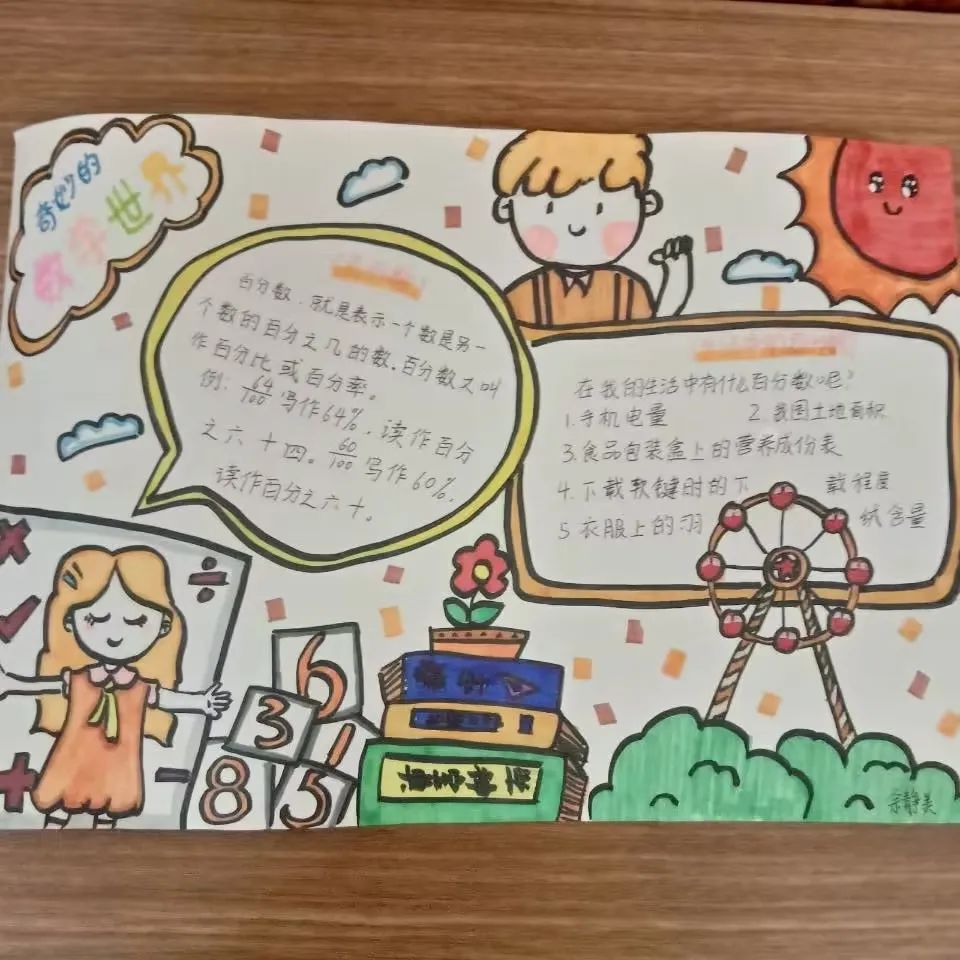 奇妙的
数学世界
百分数，就是表示一个数是另一
个数的百分之几的数。百分数又叫
作百分比或百分率。
例：64/100写作64%，读作百分
之六十四。60/100写作60%，
读作百分之六十。
在我的生活中有什么百分数呢？
1.手机电量 2.我国土地面积
3.食品包装盒上的营养成份表
4.下载软键时的下 载程度
5 衣服上的羽 绒含量
÷
6
3
1
8
5
数学